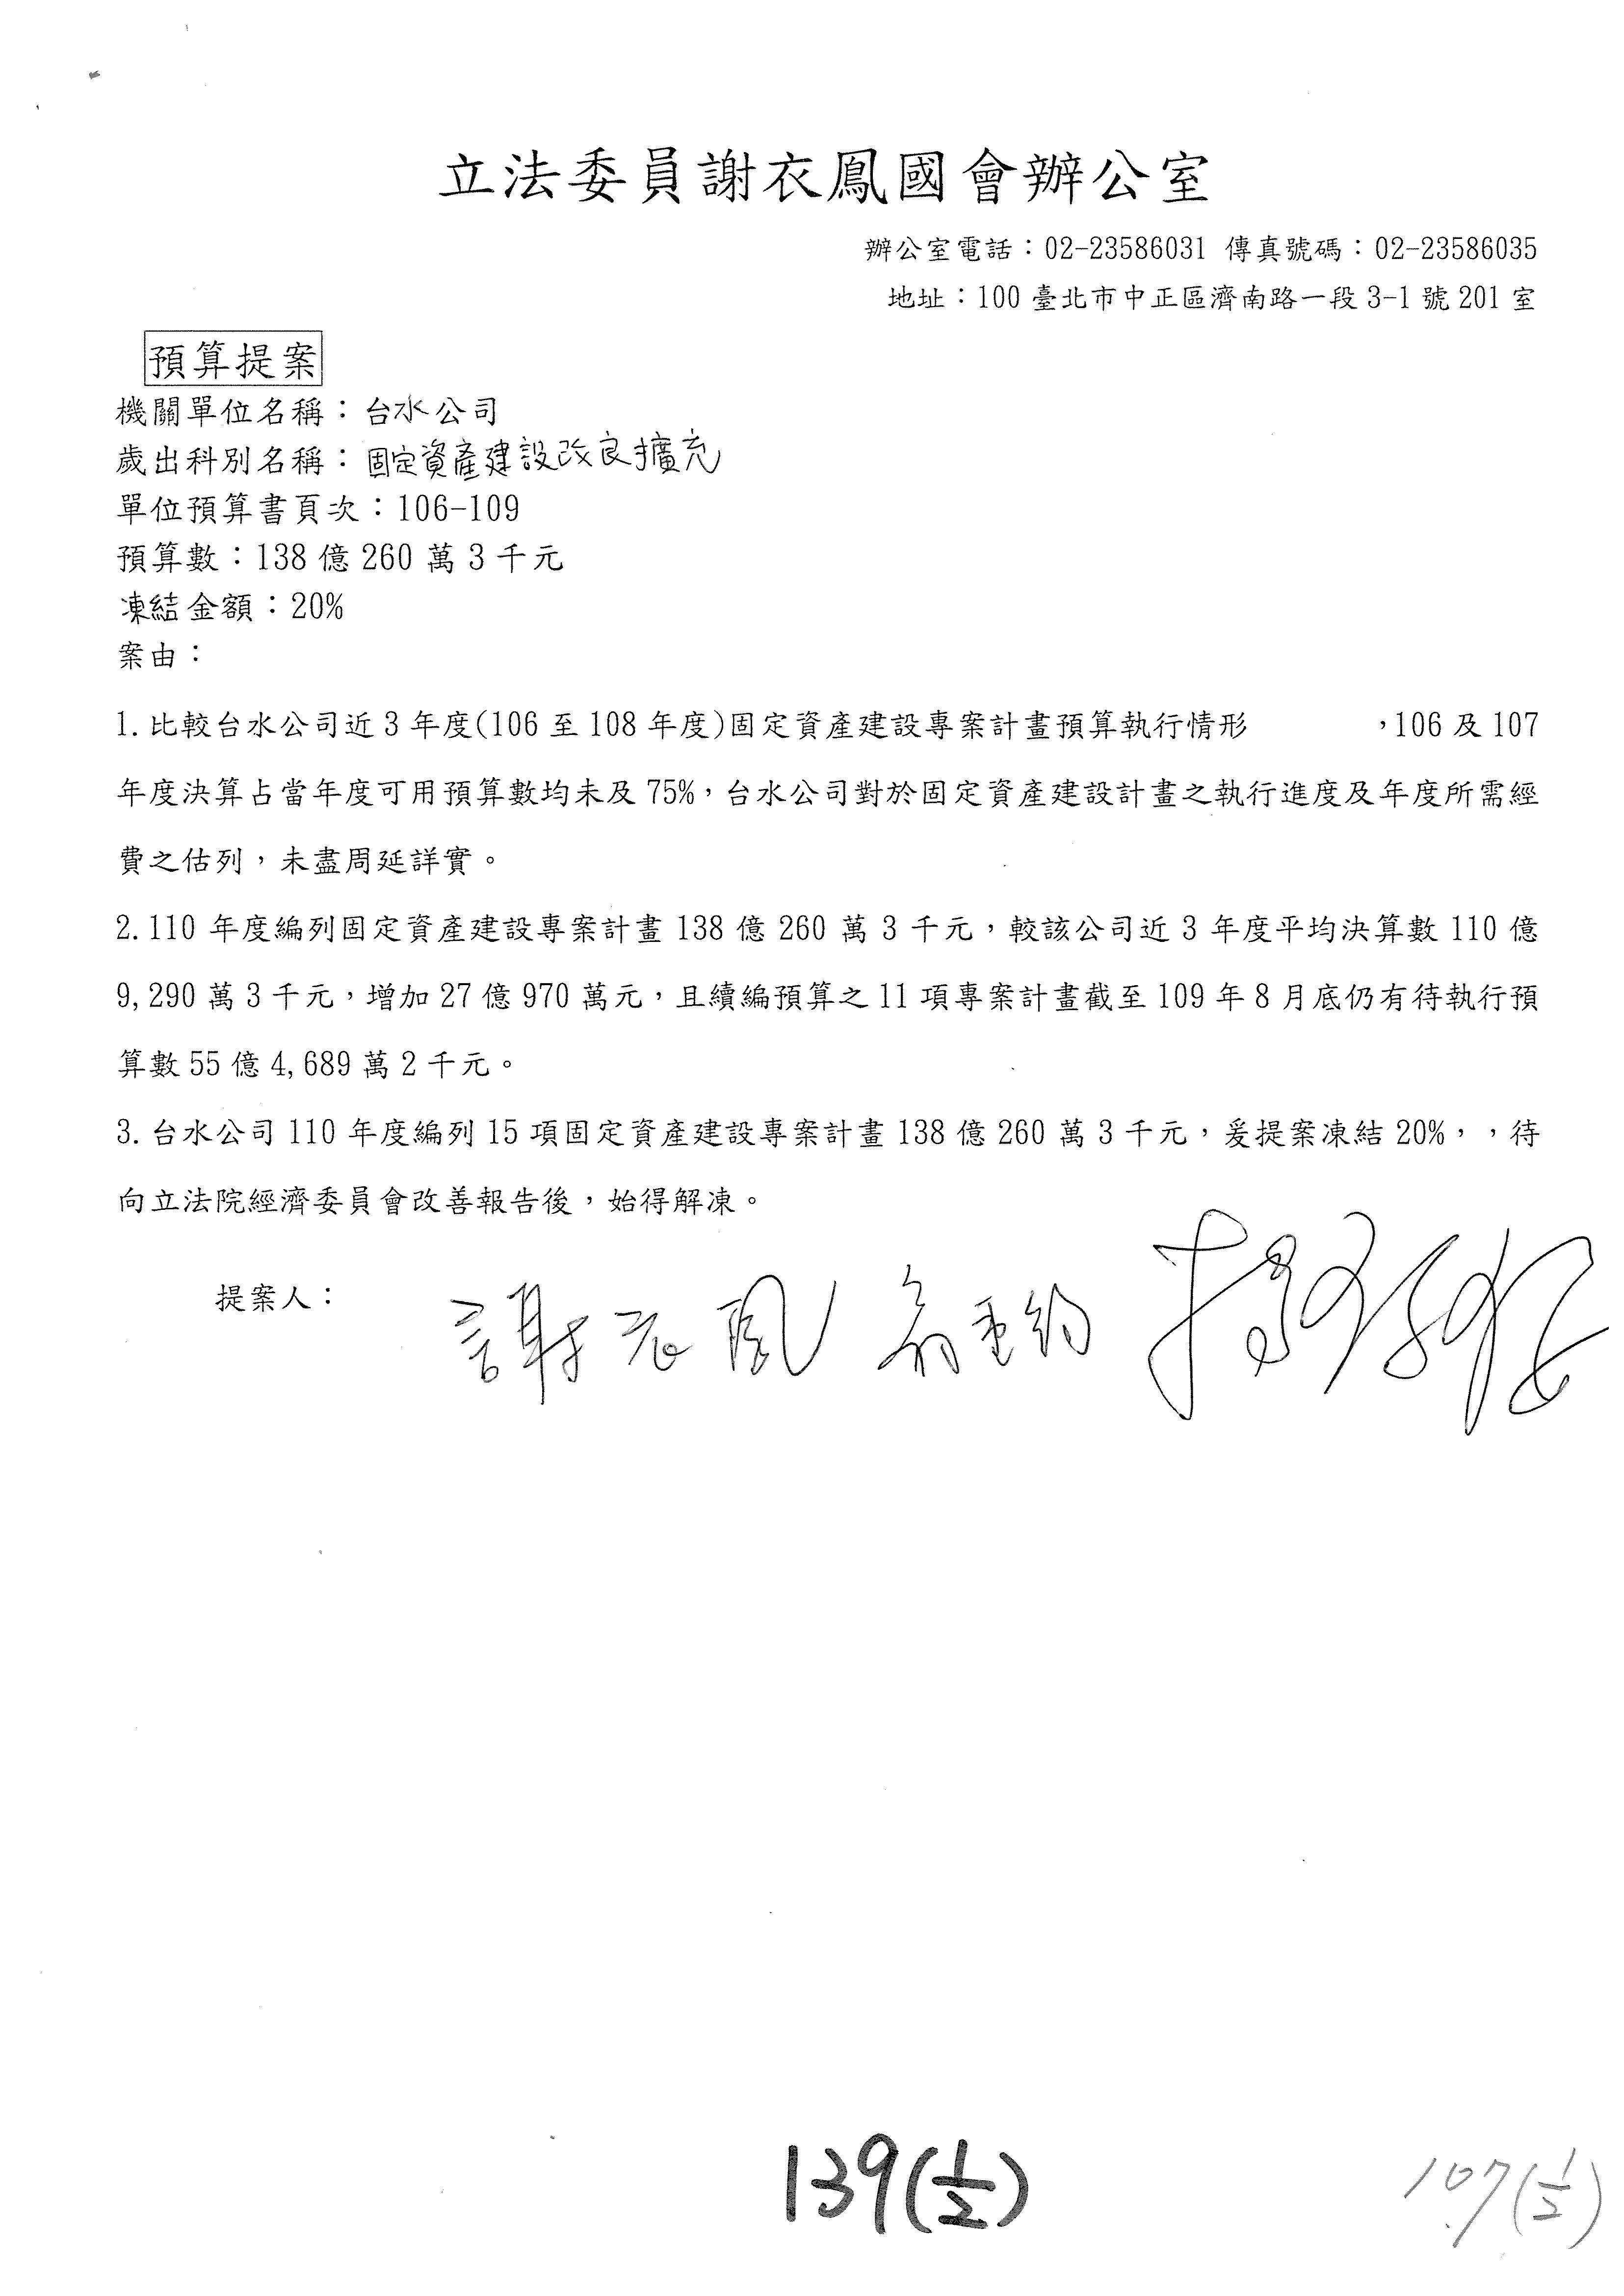 立法委員謝衣鳳國會辦公室
辦公室電話：02-23586031 傳真號碼：02-23586035
地址：100 臺北市中正區濟南路一段 3-1 號 201 室
預算提案
機關單位名稱：台水公司
歲出科別名稱：固定資產建設改良擴充
單位預算書頁次：106-109
預算數：138 億 260 萬 3 千元
凍結金額：20%
案由：
1. 比較台水公司近 3 年度(106 至 108 年度)固定資產建設專案計畫預算執行情形 ，106 及 107
年度決算占當年度可用預算數均未及 75%，台水公司對於固定資產建設計畫之執行進度及年度所需經
費之估列，未盡周延詳實。
2. 110 年度編列固定資產建設專案計畫 138 億 260 萬 3 千元，較該公司近 3 年度平均決算數 110 億
9,290 萬 3 千元，增加 27 億 970 萬元，且續編預算之 11 項專案計畫截至 109 年 8 月底仍有待執行預
算數 55 億 4,689 萬 2 千元。
3. 台水公司 110 年度編列 15 項固定資產建設專案計畫 138 億 260 萬 3 千元，爰提案凍結 20%，，待
向立法院經濟委員會改善報告後，始得解凍。
提案人： 謝衣鳳 翁重鈞
139(1/2)
107(1/2)